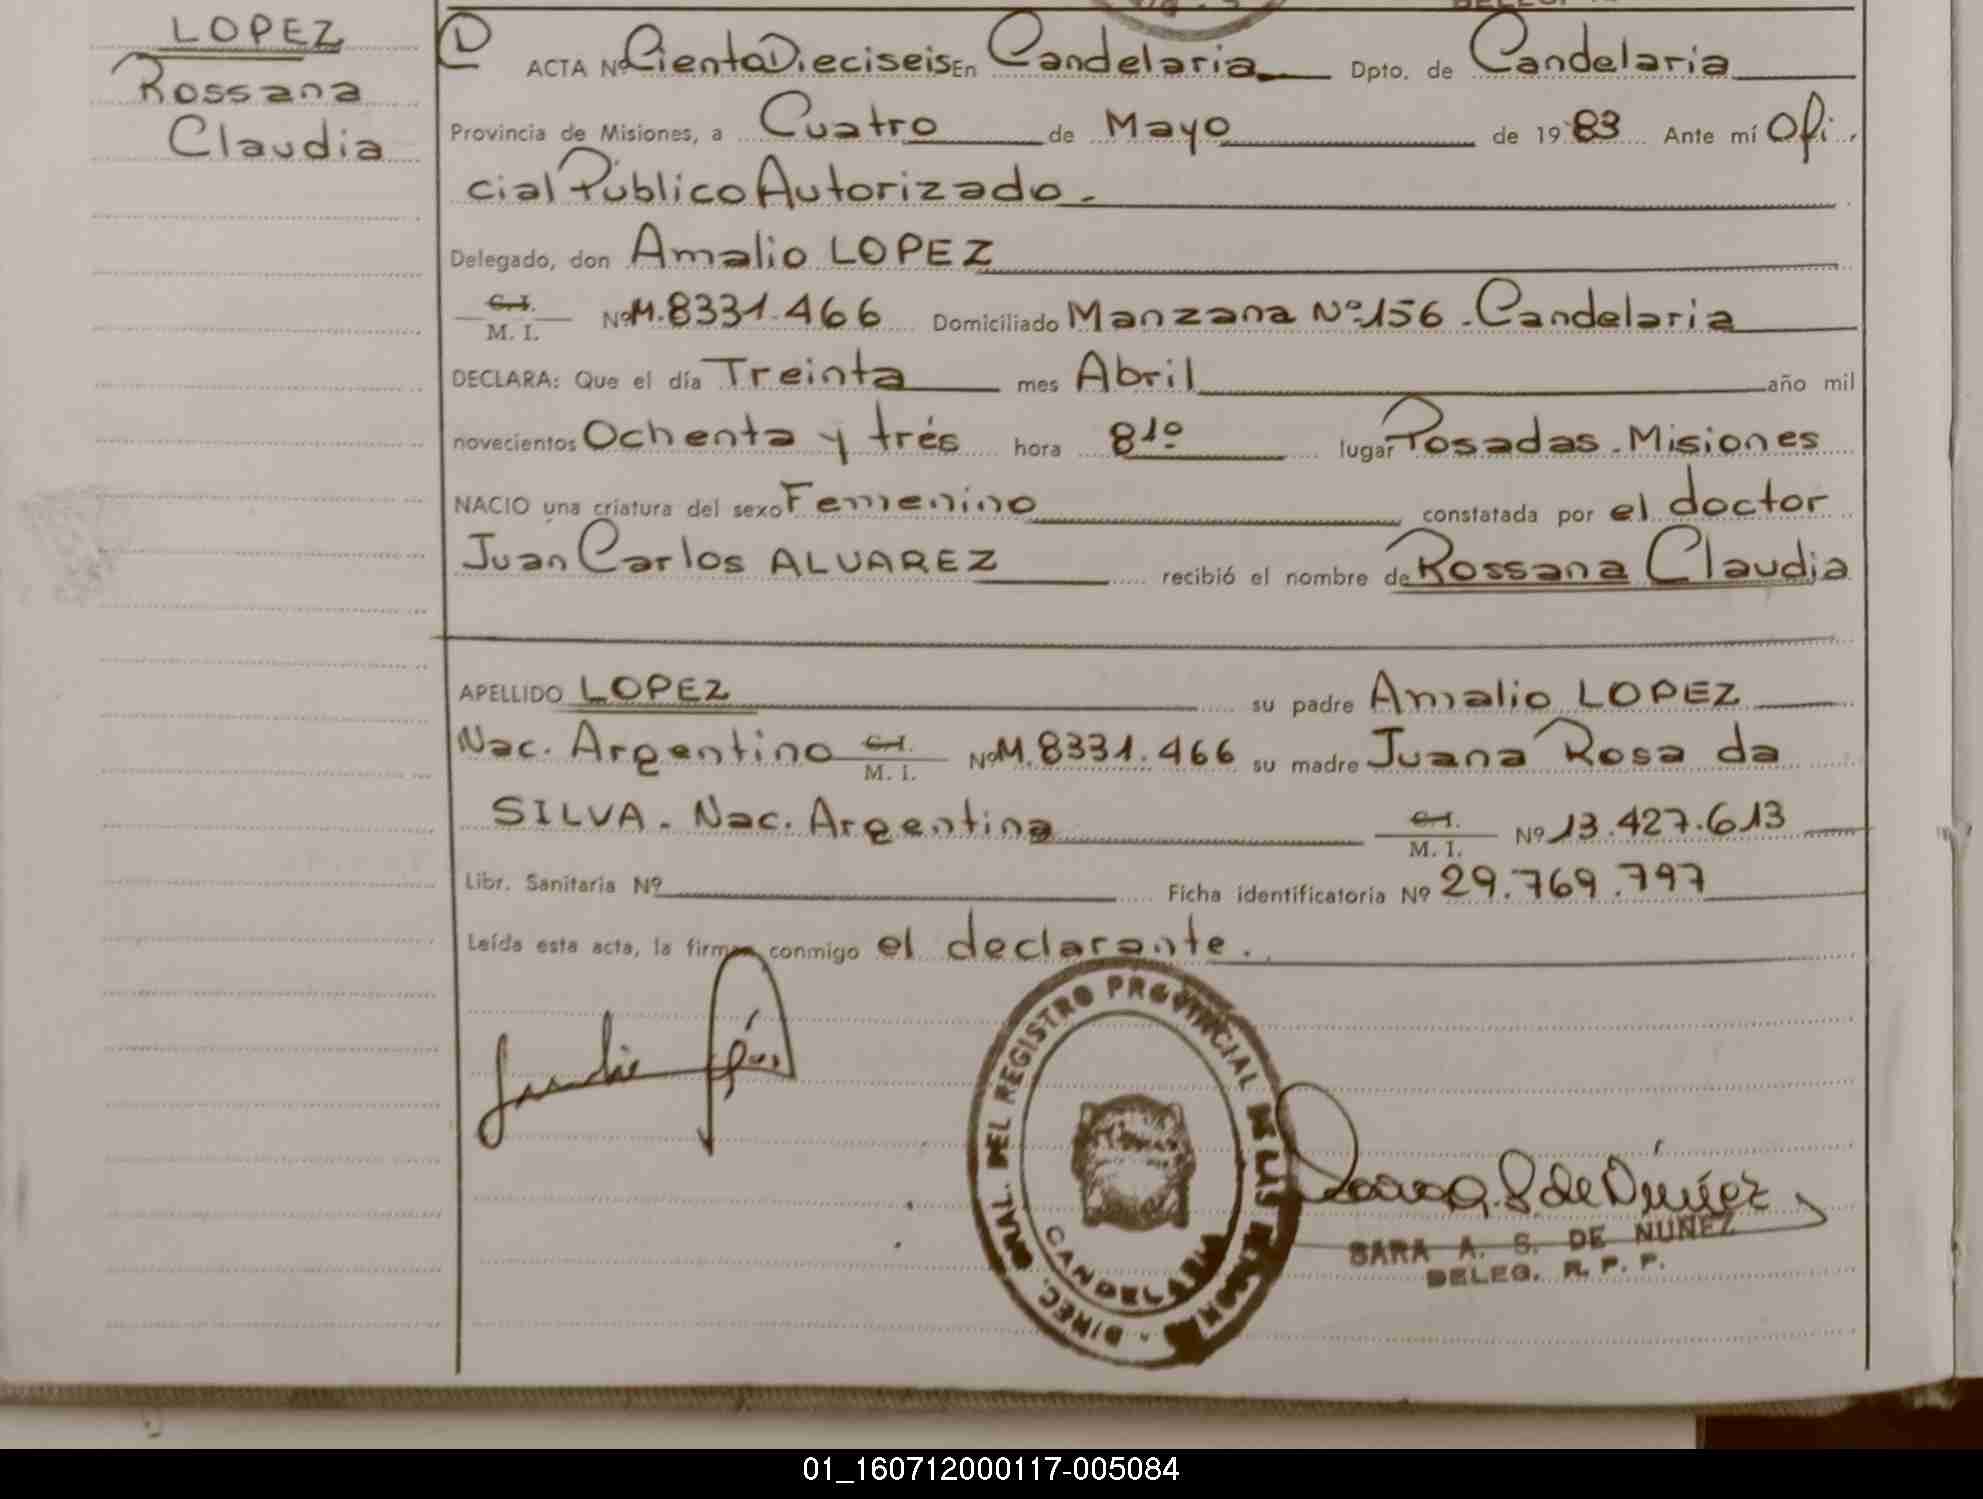 LOPEZ
Rossana
Claudia
ACTA Nº Ciento Dieciseis En Candelaria Dpto. de Candelaria
Provincia de Misiones, a Cuatro de Mayo de 1983 Ante mí Ofi.
cial Público Autorizado.
Delegado, don Amalio LOPEZ
C.I.
M. I. Nº M.8331.466 Domiciliado Manzana Nº 156. Candelaria
DECLARA: Que el día Treinta mes Abril año mil
novecientos Ochenta y trés hora 8 1º lugar Posadas. Misiones
NACIO una criatura del sexo Femenino constatada por el doctor
Juan Carlos ALVAREZ recibió el nombre de Rossana Claudia
APELLIDO LOPEZ su padre Amalio LOPEZ
Nac. Argentino C.I. M. I. Nº M.8331.466 su madre Juana Rosa da
SILVA. Nac. Argentina C.I. M. I. Nº 13.427.613
Libr. Sanitaria Nº Ficha identificatoria Nº 29.769.797
Leída esta acta, la firma conmigo el declarante.
DIREC. GRAL. DEL REGISTRO PROVINCIAL DE LAS PERSONAS
SARA A. S. DE NUÑEZ
DELEG. R. P. P.
01_160712000117-005084